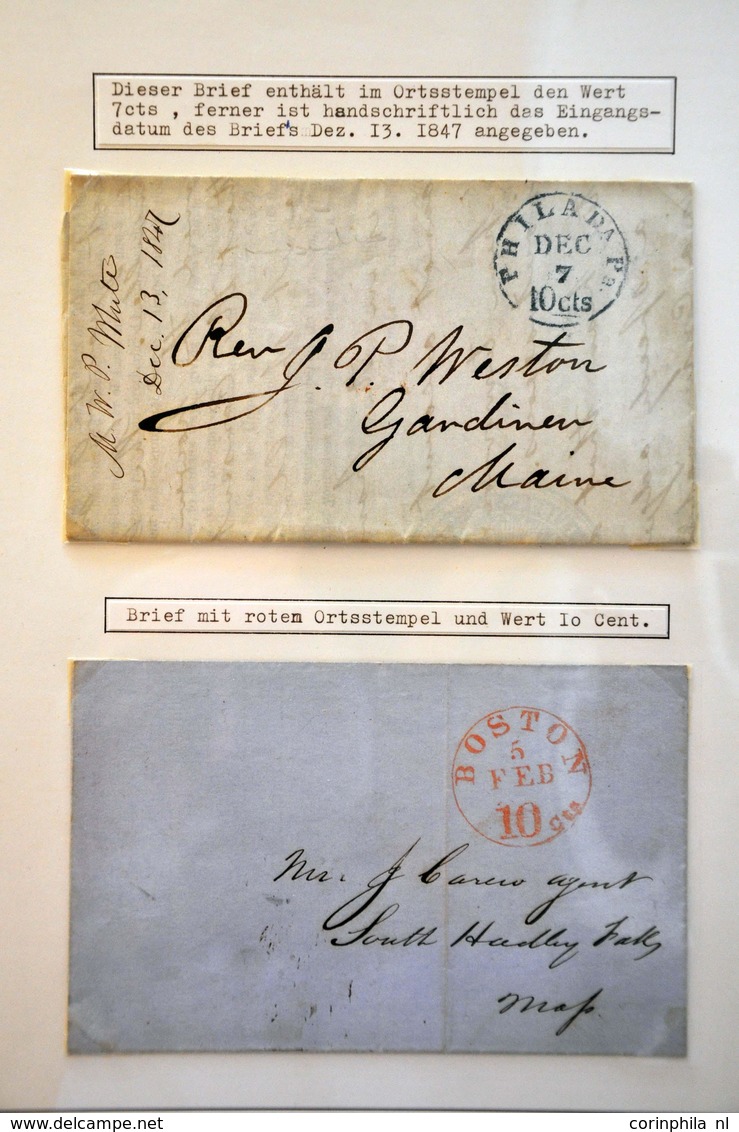 Dieser Brief enthält im Ortsstempel den Wert
7cts , ferner ist handschriftlich das Eingangs-
datum des Briefs Dez. I3. I847 angegeben.
PHILADA. Pa.
DEC
7
10cts
M. W. P.
Dec. 13, 1847
Rev J. P. Weston
Gardiner
Maine
Brief mit rotem Ortsstempel und Wert Io Cent.
BOSTON
5
FEB
10 cts
Mr. J Carew agent
South Hadley Falls
Mass
www.delcampe.net
corinphila nl